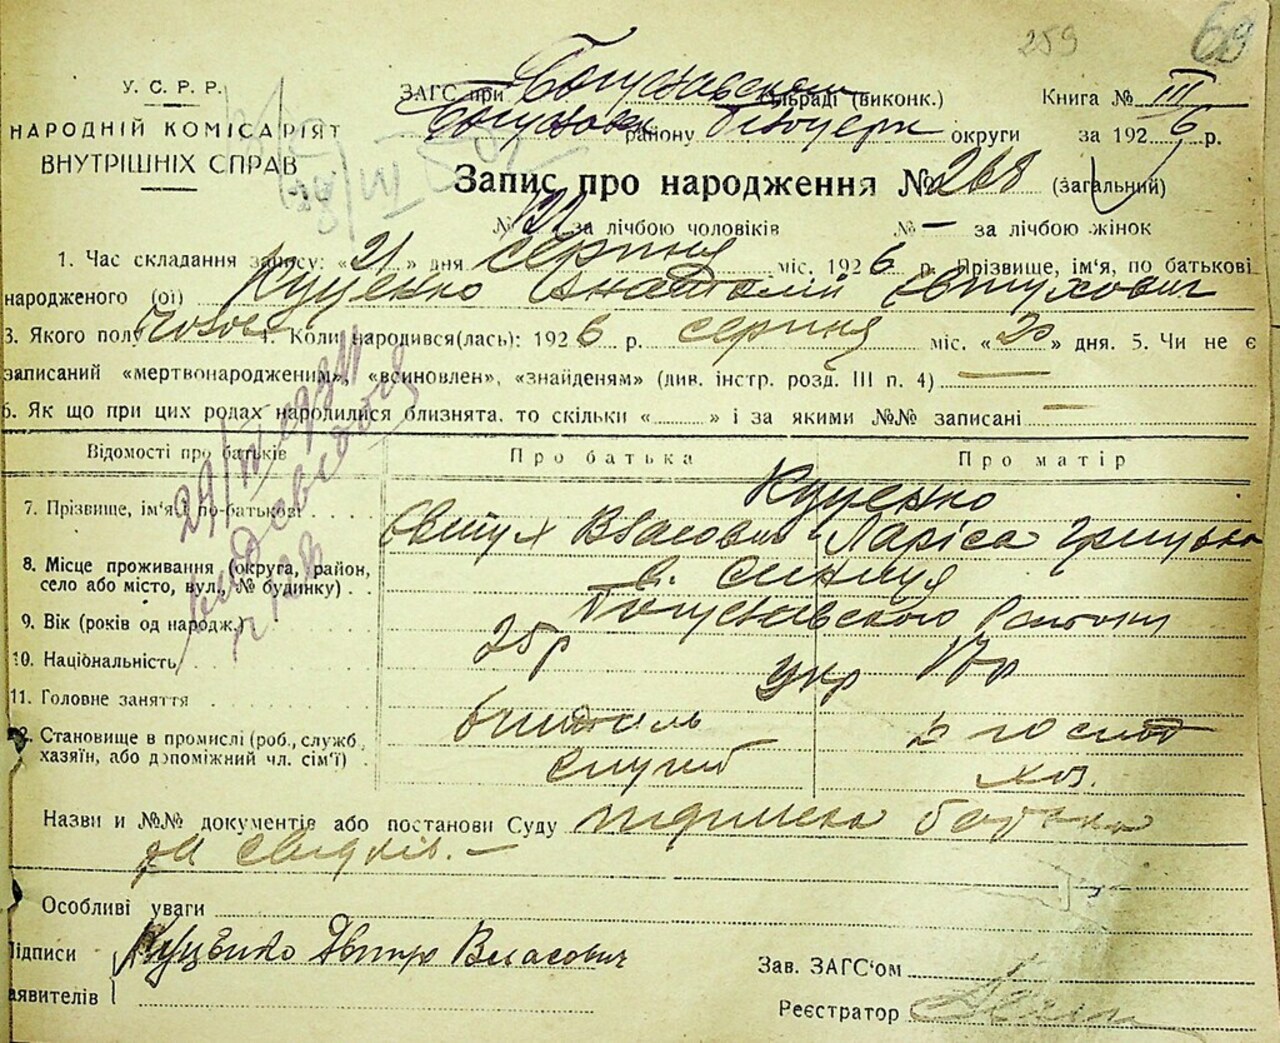 259 69
У. С. Р. Р.
НАРОДНІЙ КОМІСАРІЯТ
ВНУТРІШНІХ СПРАВ
ЗАГС при Богуславском сільраді (виконк.) Книга № III
району Білоцерк округи за 1926 р.
Запис про народження № 268 (загальний)
№ 121 за лічбою чоловіків № — за лічбою жінок
1. Час складання запису: «21» дня серпня міс. 1926 р. Прізвище, ім'я, по батькові
народженого (ої) Куценко Анатолій Євтухович
3. Якого полу чолов 4. Коли народився(лась): 1926 р. серпня міс. «20» дня. 5. Чи не є
записаний «мертвонародженим», «всиновлен», «знайденям» (див. інстр. розд. III п. 4) —
6. Як що при цих родах народилися близнята, то скільки «........» і за якими №№ записані —
Відомості про батьків Про батька Про матір
7. Прізвище, ім'я і по-батькові Куценко
Євтух Власович Ларіса Грицьк
8. Місце проживання (округа, район,
село або місто, вул., № будинку) с. Синиця
Богуславского Району
9. Вік (років од народж.) 25р 17р
10. Національність укр
11. Головне заняття
12. Становище в промислі (роб., служб,
хазяїн, або допоміжний чл. сім'ї) служб хоз.
Назви и №№ документів або постанови Суду підписка батька
та свидків. —
Особливі уваги
Підписи Куцѣнко Двтух Власович
заявителів
Зав. ЗАГС'ом
Реєстратор